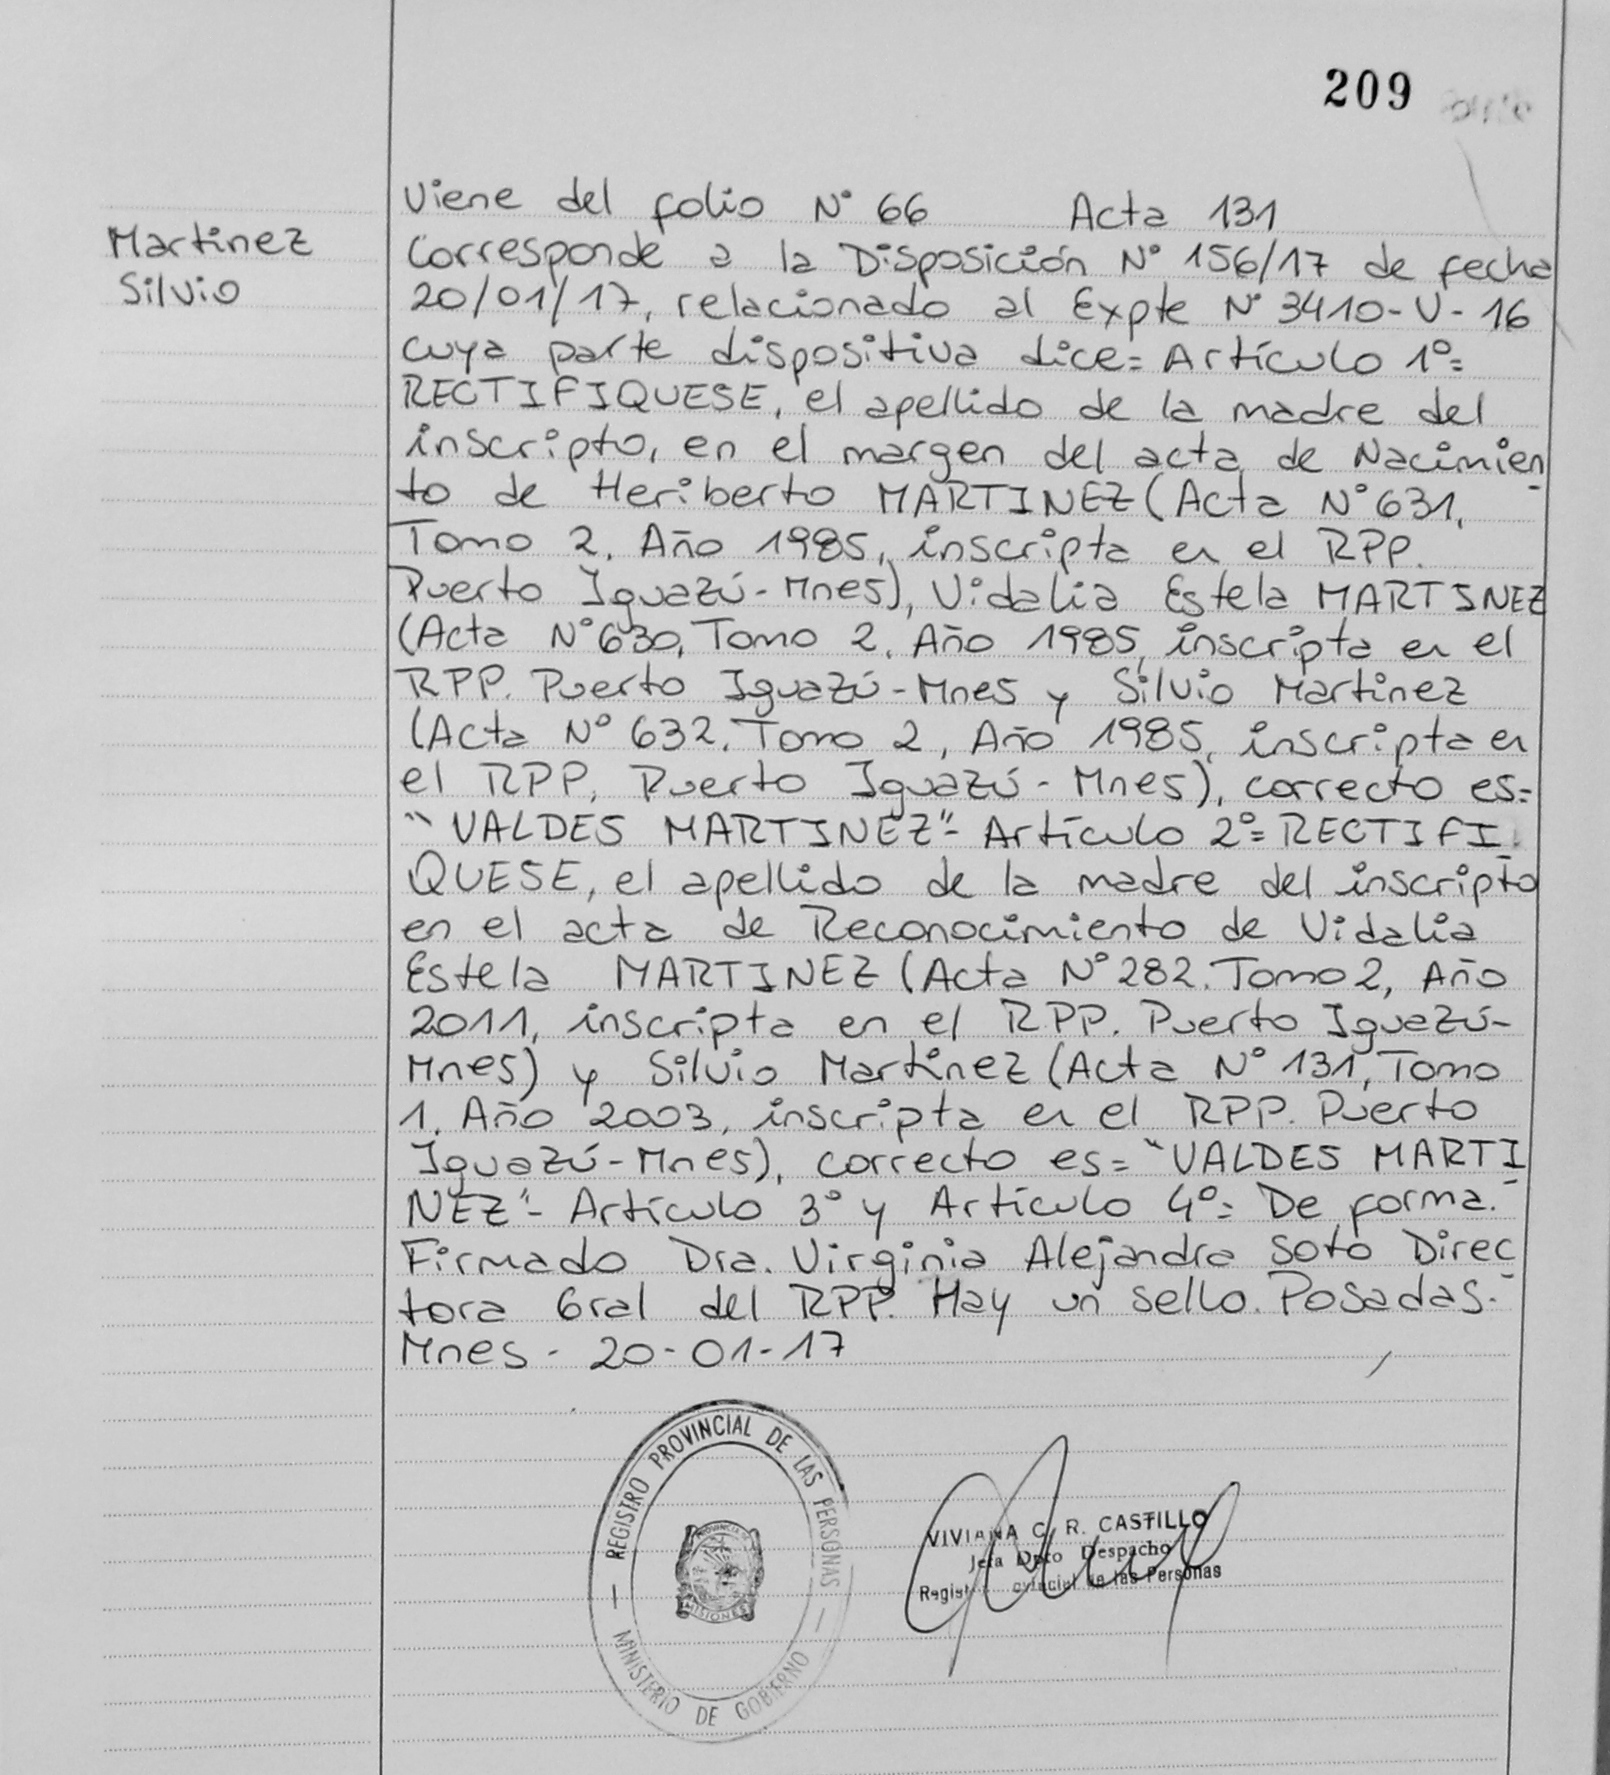 209
Martinez
Silvio
Viene del folio N° 66 Acta 131
Corresponde a la Disposición N° 156/17 de fecha
20/01/17, relacionado al Expte N° 3410-V-16
cuya parte dispositiva dice= Artículo 1º=
RECTIFIQUESE, el apellido de la madre del
inscripto, en el margen del acta de Nacimien
to de Heriberto MARTINEZ (Acta N° 631,
Tomo 2, Año 1985, inscripta en el RPP.
Puerto Iguazú-Mnes), Vidalia Estela MARTINEZ
(Acta N° 630, Tomo 2, Año 1985, inscripta en el
RPP. Puerto Iguazú-Mnes y Silvio Martinez
(Acta N° 632, Tomo 2, Año 1985, inscripta en
el RPP, Puerto Iguazú-Mnes), correcto es=
"VALDES MARTINEZ"- Artículo 2º= RECTIFI-
QUESE, el apellido de la madre del inscripto
en el acta de Reconocimiento de Vidalia
Estela MARTINEZ (Acta N° 282. Tomo 2, Año
2011, inscripta en el RPP. Puerto Iguazú-
Mnes) y Silvio Martinez (Acta N° 131, Tomo
1, Año 2003, inscripta en el RPP. Puerto
Iguazú-Mnes), correcto es= "VALDES MARTI
NEZ"- Artículo 3° y Artículo 4º= De forma.-
Firmado Dra. Virginia Alejandra Soto Direc-
tora Gral del RPP. Hay un sello. Posadas.-
Mnes - 20-01-17
REGISTRO PROVINCIAL DE LAS PERSONAS
MINISTERIO DE GOBIERNO
PROVINCIA DE
MISIONES
VIVIANA C. R. CASTILLO
Jefa Dpto Despacho
de las Personas